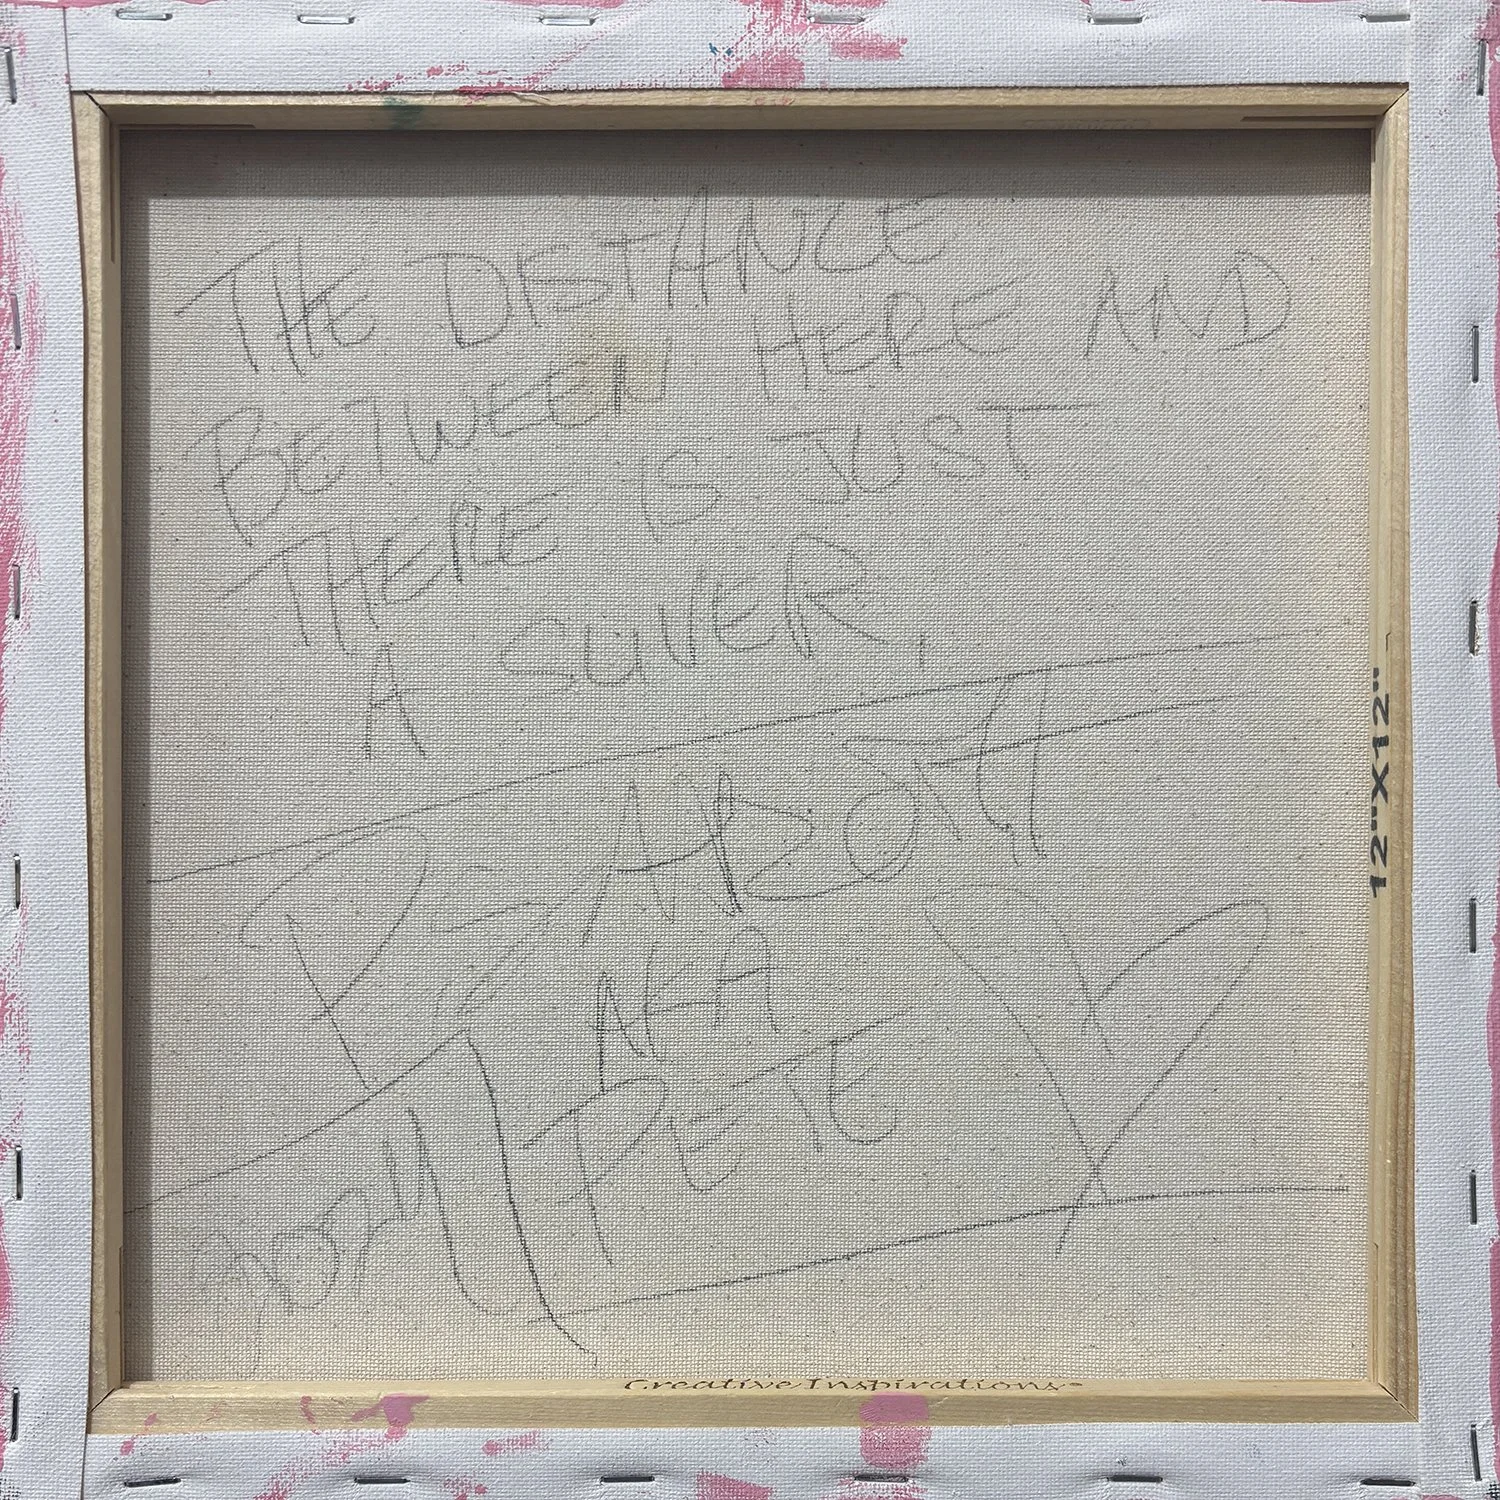 THE DISTANCE
BETWEEN HERE AND
THERE IS JUST
A SLIVER.
NEA
PETE
12"X12"
Creative Inspirations